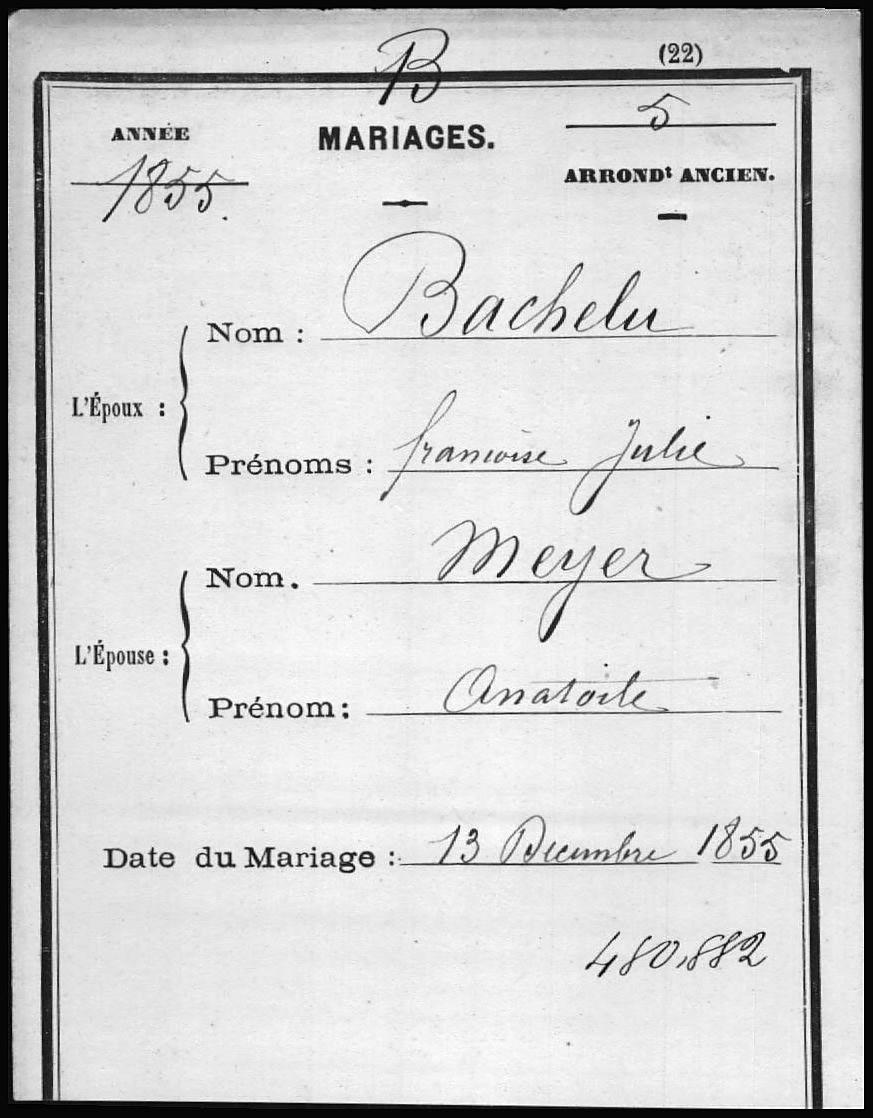 B
(22)
ANNÉE
1855.
MARIAGES.
5
ARRONDt ANCIEN.
L'Époux :
Nom : Bachelu
Prénoms : françoise Julie
L'Épouse :
Nom. Meyer
Prénom: Anatoile
Date du Mariage : 13 Decembre 1855
480,882